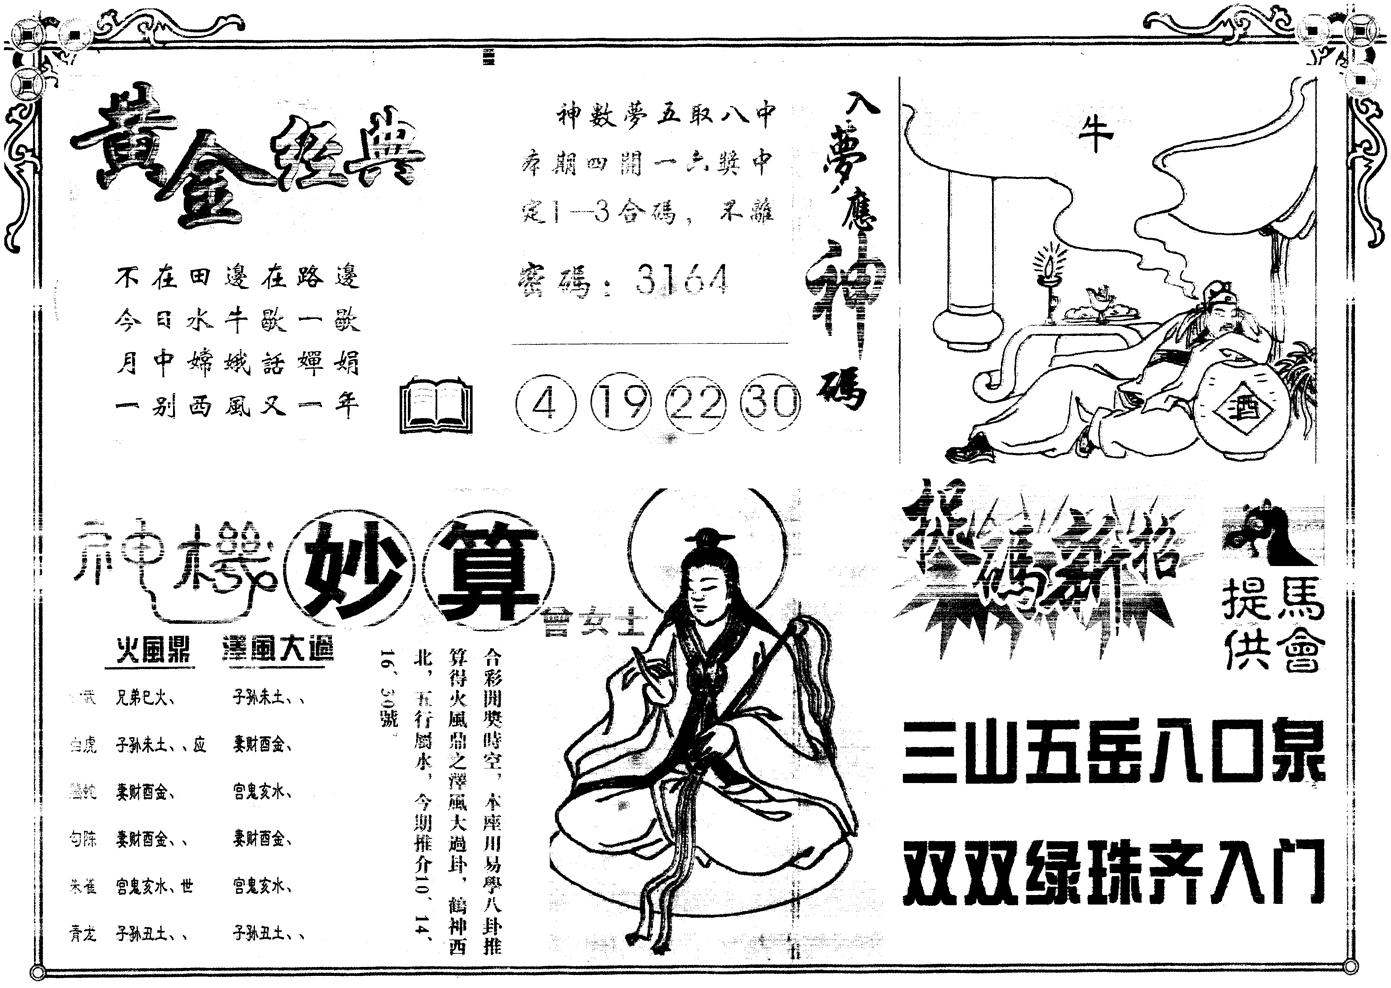 黃金經典
不在田邊在路邊
今日水牛歇一歇
月中嫦娥話嬋娟
一别西風又一年
神數夢五取八中
本期四開一六獎中
定1—3合碼，不離
密碼：3164
4 19 22 30
入夢應神碼
牛
酒
神機妙算
曾女士
火風鼎 澤風大過
武 兄弟巳火、 子孙未土、、
白虎 子孙未土、、应 妻财酉金、
蛇 妻财酉金、 官鬼亥水、
勾陈 妻财酉金、、 妻财酉金、
朱雀 官鬼亥水、世 官鬼亥水、
青龙 子孙丑土、、 子孙丑土、、
合彩開獎時空，本座用易學八卦推
算得火風鼎之澤風大過卦，鶴神西
北，五行屬水，今期推介10、14、
16、30號。
捉碼新招
馬會
提供
三山五岳入口泉
双双绿珠齐入门